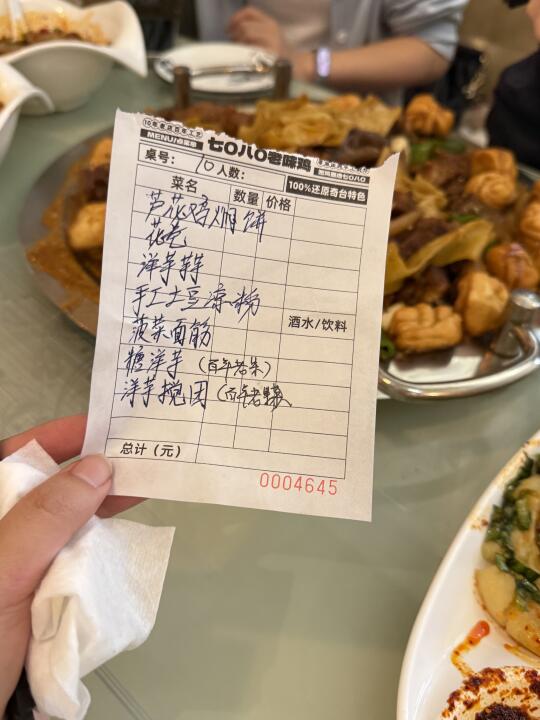 10年老店百年工艺
MENU/点菜单
七〇八〇老味鸡
100%还原奇台特色
桌号: 10 人数:
菜名 数量 价格
芦花鸡焖饼
花卷
洋芋芽芽
手工土豆凉粉
酒水/饮料
菠菜面筋
糖洋芋 (百年老朱)
洋芋搅团
总计(元)
0004645